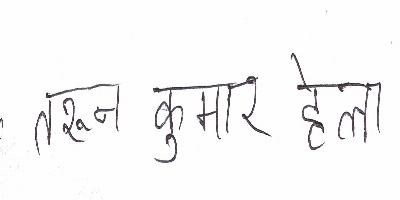 तरुन कुमार हेला